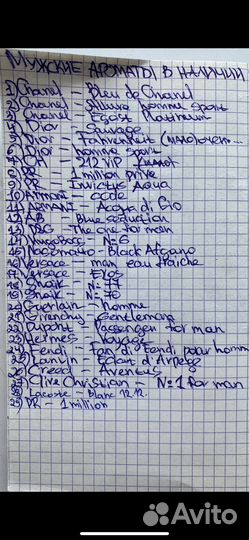 Мужские ароматы в наличии
1) Chanel - Bleu de Chanel
2) Chanel - Allure homme sport
3) Chanel - Egoist Platinum
4) Dior - Sauvage
5) Dior - Fahrenheit (мало)
6) Dior - homme sport
7) CH - 212 VIP
8) PR - 1 million prive
9) PR - Invictus Aqua
10) Armani - code
11) Armani - Acqua di Gio
12) AB - Blue seduction
13) D&G The one for man
14) HugoBoss - №6
15) Nasomatto - Black Afgano
16) Versace - man eau fraiche
17) Versace - Eros
18) Shaik - №77
19) Shaik - №70
20) Guerlain - homme
21) Givenchy - Gentlemans
22) Dupont - Passenger for man
23) Hermes - Voyage
24) Fendi - Fan di Fendi pour homme
25) Lanvin - Eclat d'Arpege
26) Creed - Aventus
27) Clive Christian - №1 for man
28) Lacoste - Blanc 12.12.
29) PR - 1 million
Avito